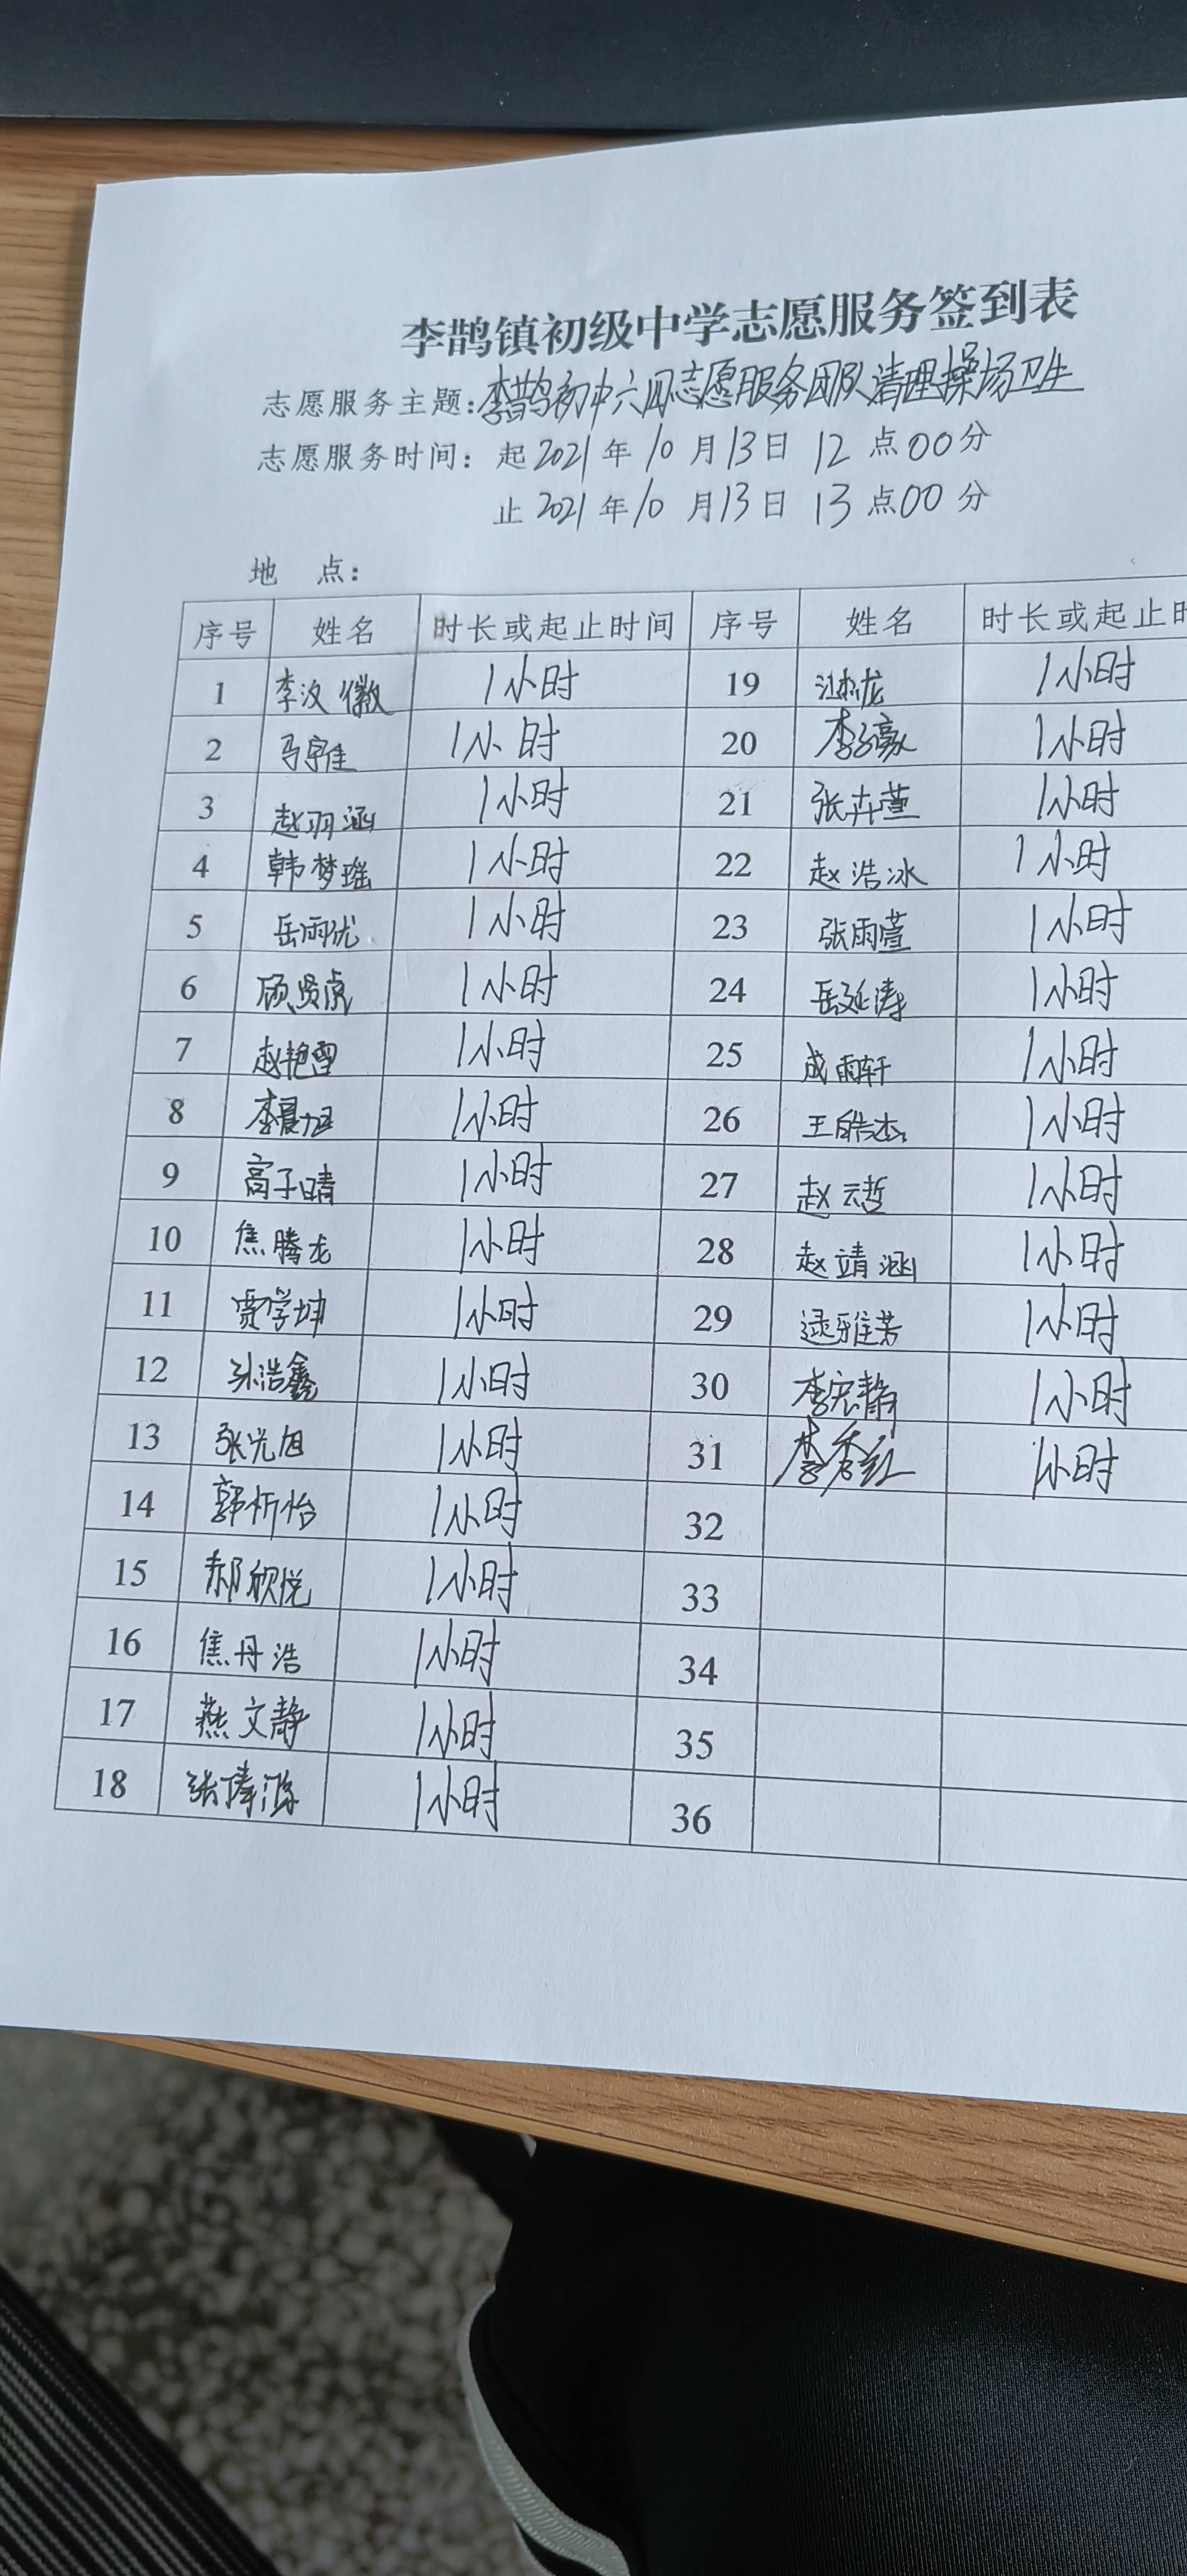 李鹊镇初级中学志愿服务签到表
志愿服务主题:李鹊初中六月志愿服务团队清理操场卫生
志愿服务时间: 起2021年10月13日 12点00分
止2021年10月13日 13点00分
地 点:
序号 姓名 时长或起止时间 序号 姓名 时长或起止时
1 李汶徽 1小时 19 1小时
2 马宇佳 1小时 20 李子豪 1小时
3 赵羽涵 1小时 21 张卉萱 1小时
4 韩梦瑶 1小时 22 赵浩冰 1小时
5 岳雨优 1小时 23 张雨萱 1小时
6 顾贤虎 1小时 24 岳延涛 1小时
7 赵艳雪 1小时 25 成雨轩 1小时
8 李晨旭 1小时 26 王皓杰 1小时
9 高子晴 1小时 27 赵云哲 1小时
10 焦腾龙 1小时 28 赵靖涵 1小时
11 贾学坤 1小时 29 逯雅芳 1小时
12 孙浩鑫 1小时 30 李宏静 1小时
13 张光旭 1小时 31 李秀红 1小时
14 郭析怡 1小时 32
15 郝欣悦 1小时 33
16 焦丹浩 1小时 34
17 燕文静 1小时 35
18 1小时 36